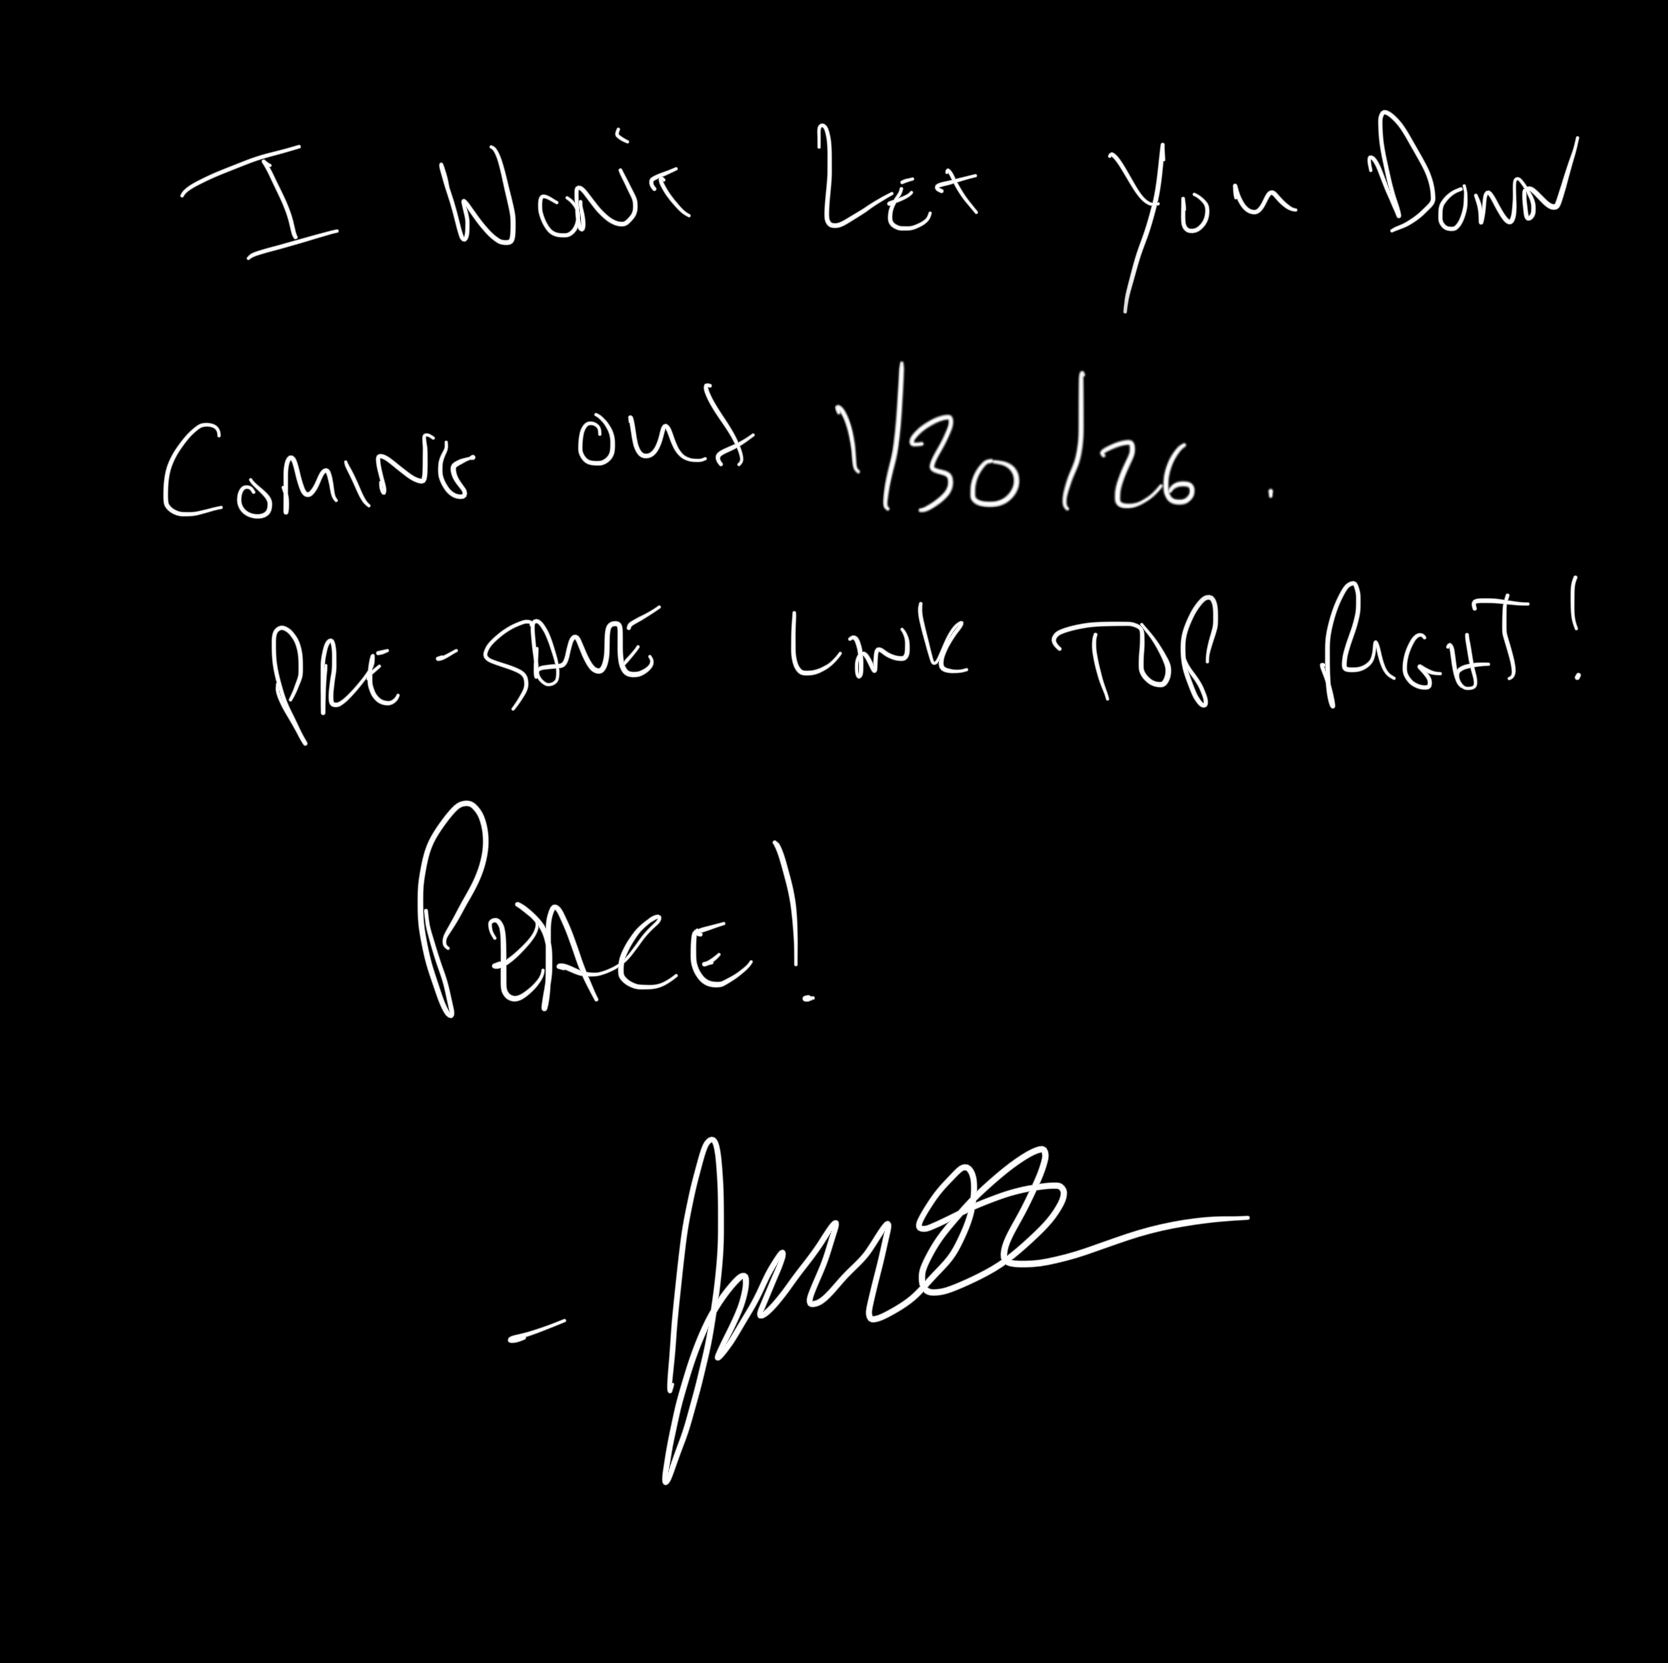 I Won't Let You Down
Coming out 1/30/26.
PRE-SAVE LINK TOP RIGHT!
PEACE!
-